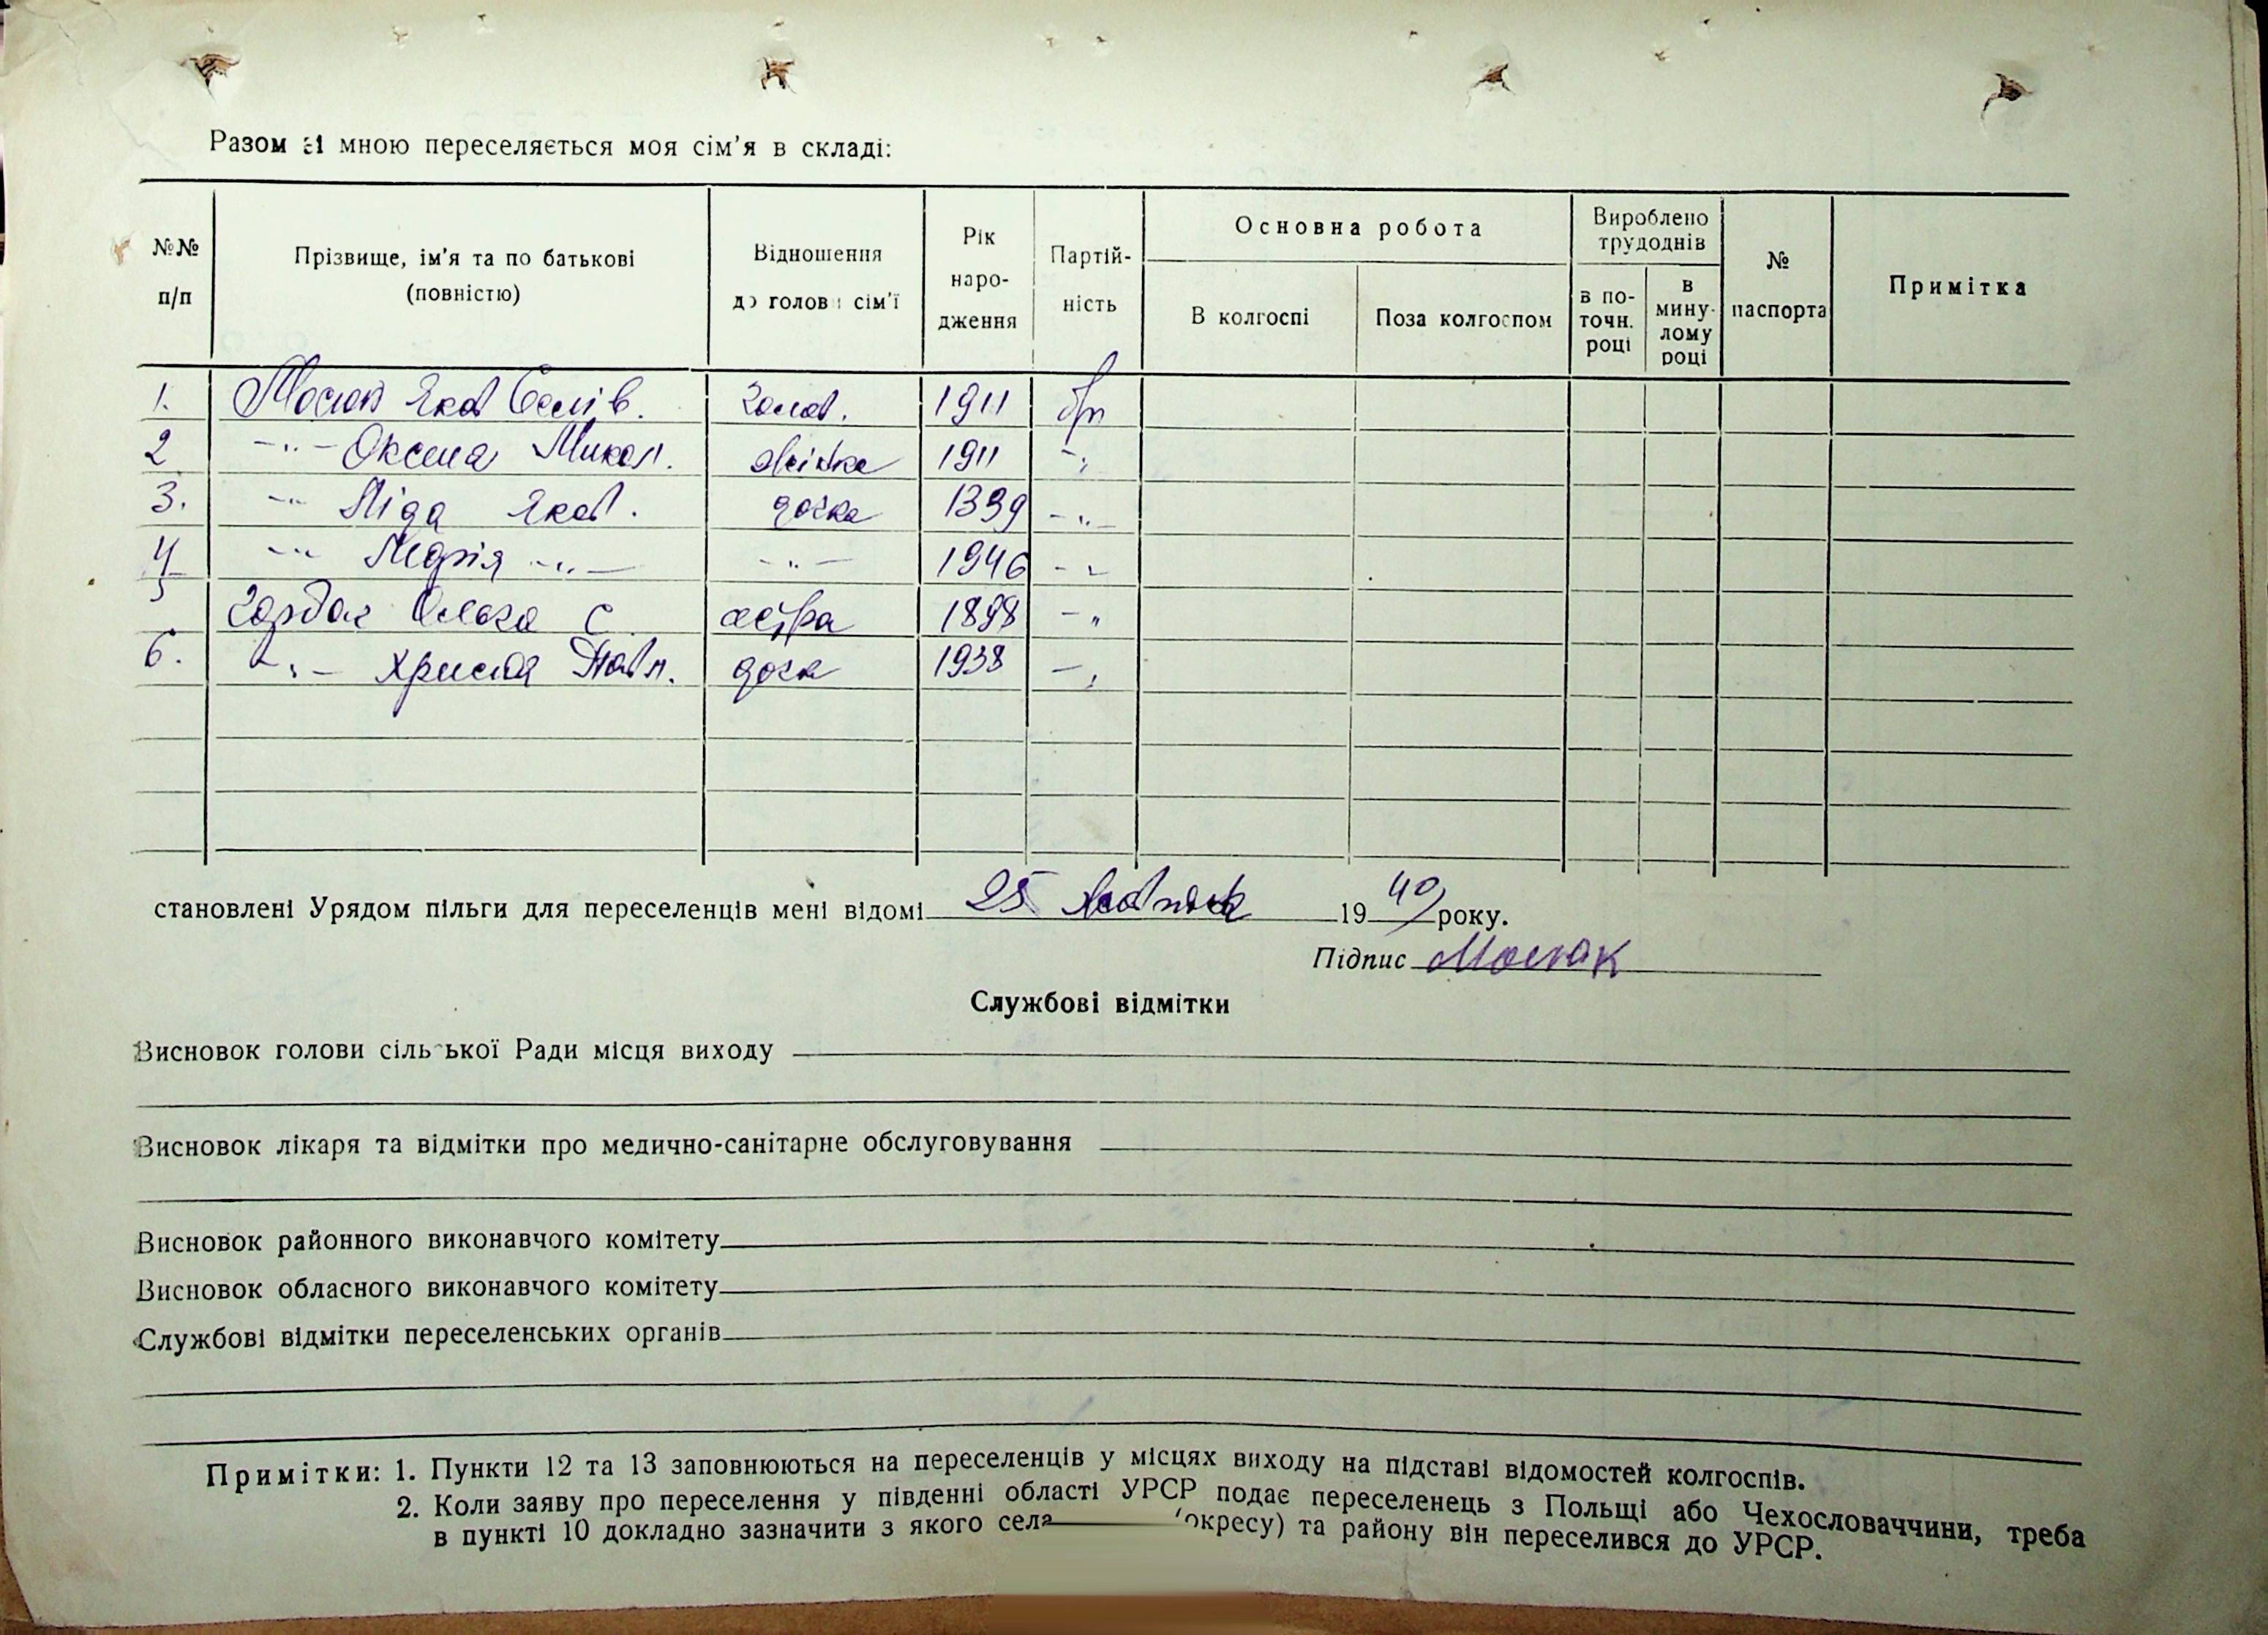 Разом зі мною переселяється моя сім'я в складі:
№№ п/п
Прізвище, ім'я та по батькові (повністю)
Відношення до голови сім'ї
Рік наро- дження
Партій- ність
Основна робота
В колгоспі
Поза колгоспом
Вироблено трудоднів
в по- точн. році
в мину- лому році
№ паспорта
Примітка
1. Яков голов. 1911 бп
2 -"- Оксана Микол. жінка 1911 -"-
3. -"- Ліда Яков. дочка 1939 -"-
4 -"- Марія -"- -"- 1946 -"-
5 Ольга С. сестра 1898 -"-
6. -"- Христя Павл. дочк 1938 -"-
становлені Урядом пільги для переселенців мені відомі 25 1949 року.
Підпис
Службові відмітки
Висновок голови сільської Ради місця виходу
Висновок лікаря та відмітки про медично-санітарне обслуговування
Висновок районного виконавчого комітету
Висновок обласного виконавчого комітету
Службові відмітки переселенських органів
Примітки: 1. Пункти 12 та 13 заповнюються на переселенців у місцях виходу на підставі відомостей колгоспів.
2. Коли заяву про переселення у південні області УРСР подає переселенець з Польщі або Чехословаччини, треба
в пункті 10 докладно зазначити з якого села (окресу) та району він переселився до УРСР.